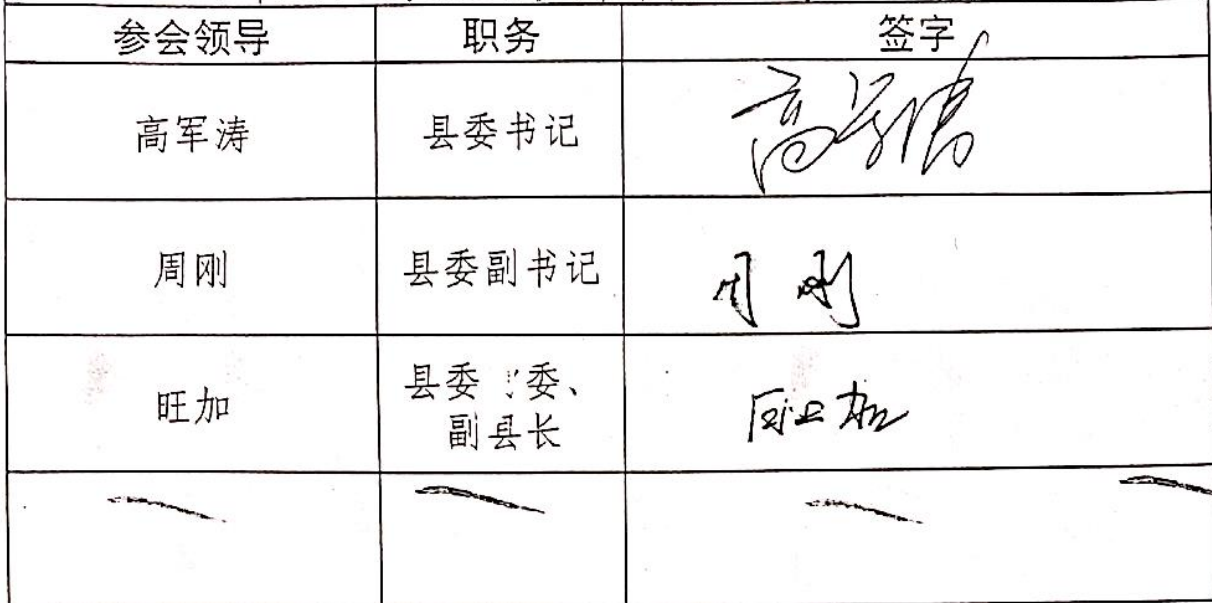 参会领导 职务 签字
高军涛 县委书记 高军涛
周刚 县委副书记 周刚
旺加 县委 委、
副县长